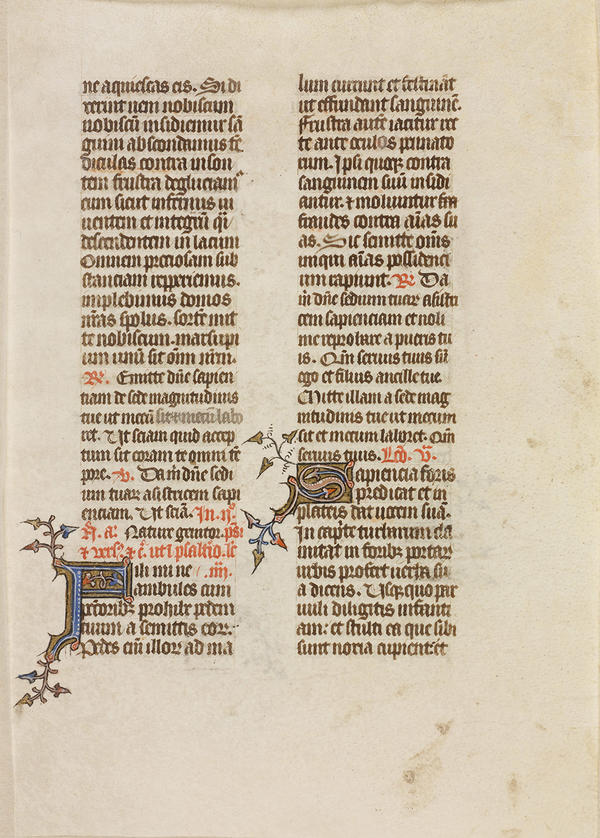 ne aquiescas eis. Si di
xerint ueni nobiscum
nobiscũ insidiemur sã
guini abscondamus tẽ
diculas contra inson
tem frustra deglutiam⁹
eum sicut infernus ui
uentem et integrũ q̃si
descendentem in lacum
Omnem preciosam sub
stanciam repperiemus.
implebimus domos
nr̃as spolijs. sortẽ mit
te nobiscum. marsupi
um unũ sit om̃i nr̃m.
R̃. Emitte dñe sapien
tiam de sede magnitudinis
tue ut mecũ sit et mecũ labo
ret. Ut sciam quid accep
tum sit coram te omni tẽ
pore. V̇. Da m̃ dñe sedi
um tuarũ asistricem sapi
enciam. Ut sciã. In ij°
ñ. a᷑. Nature genitor. ps̃i
Fili mi ne .iij.
ambules cum
pctõribꝫ prohibe pedem
tuum a semittis eorꝫ.
Pedes eñi illorꝫ ad ma
lum currunt et festinãt
ut effundant sanguinẽ.
Frustra autẽ iacitur ret
te ante oculos pennato
rum. Ipi quoqꝫ contra
sanguinem suũ insidi
antur. et moliuntur
fraudes contra aĩas su
as. Sic semitte om̃is
iniqui aĩas possidenci
um rapiunt. R̃. Da
m̃ dñe sedium tuarꝫ asistri
cem sapienciam et noli
me reprobare a pueris tu
is. Qm̃ seruus tuus sũ
ego et filius ancille tue.
Mitte illam a sede mag
nitudinis tue ut mecum
sit et mecum laboret. Qm̃
seruus tuus. Lc̃o. V̇.
Sapiencia foris
predicat et in
plateis dat uocem suã.
In capite turbarum cla
mitat in foribꝫ portarꝫ
urbis profert uerba su
a dicens. Usqꝫquo par
uuli diligitis infanti
am: et stulti ea que sibi
sunt noxia cupient: et